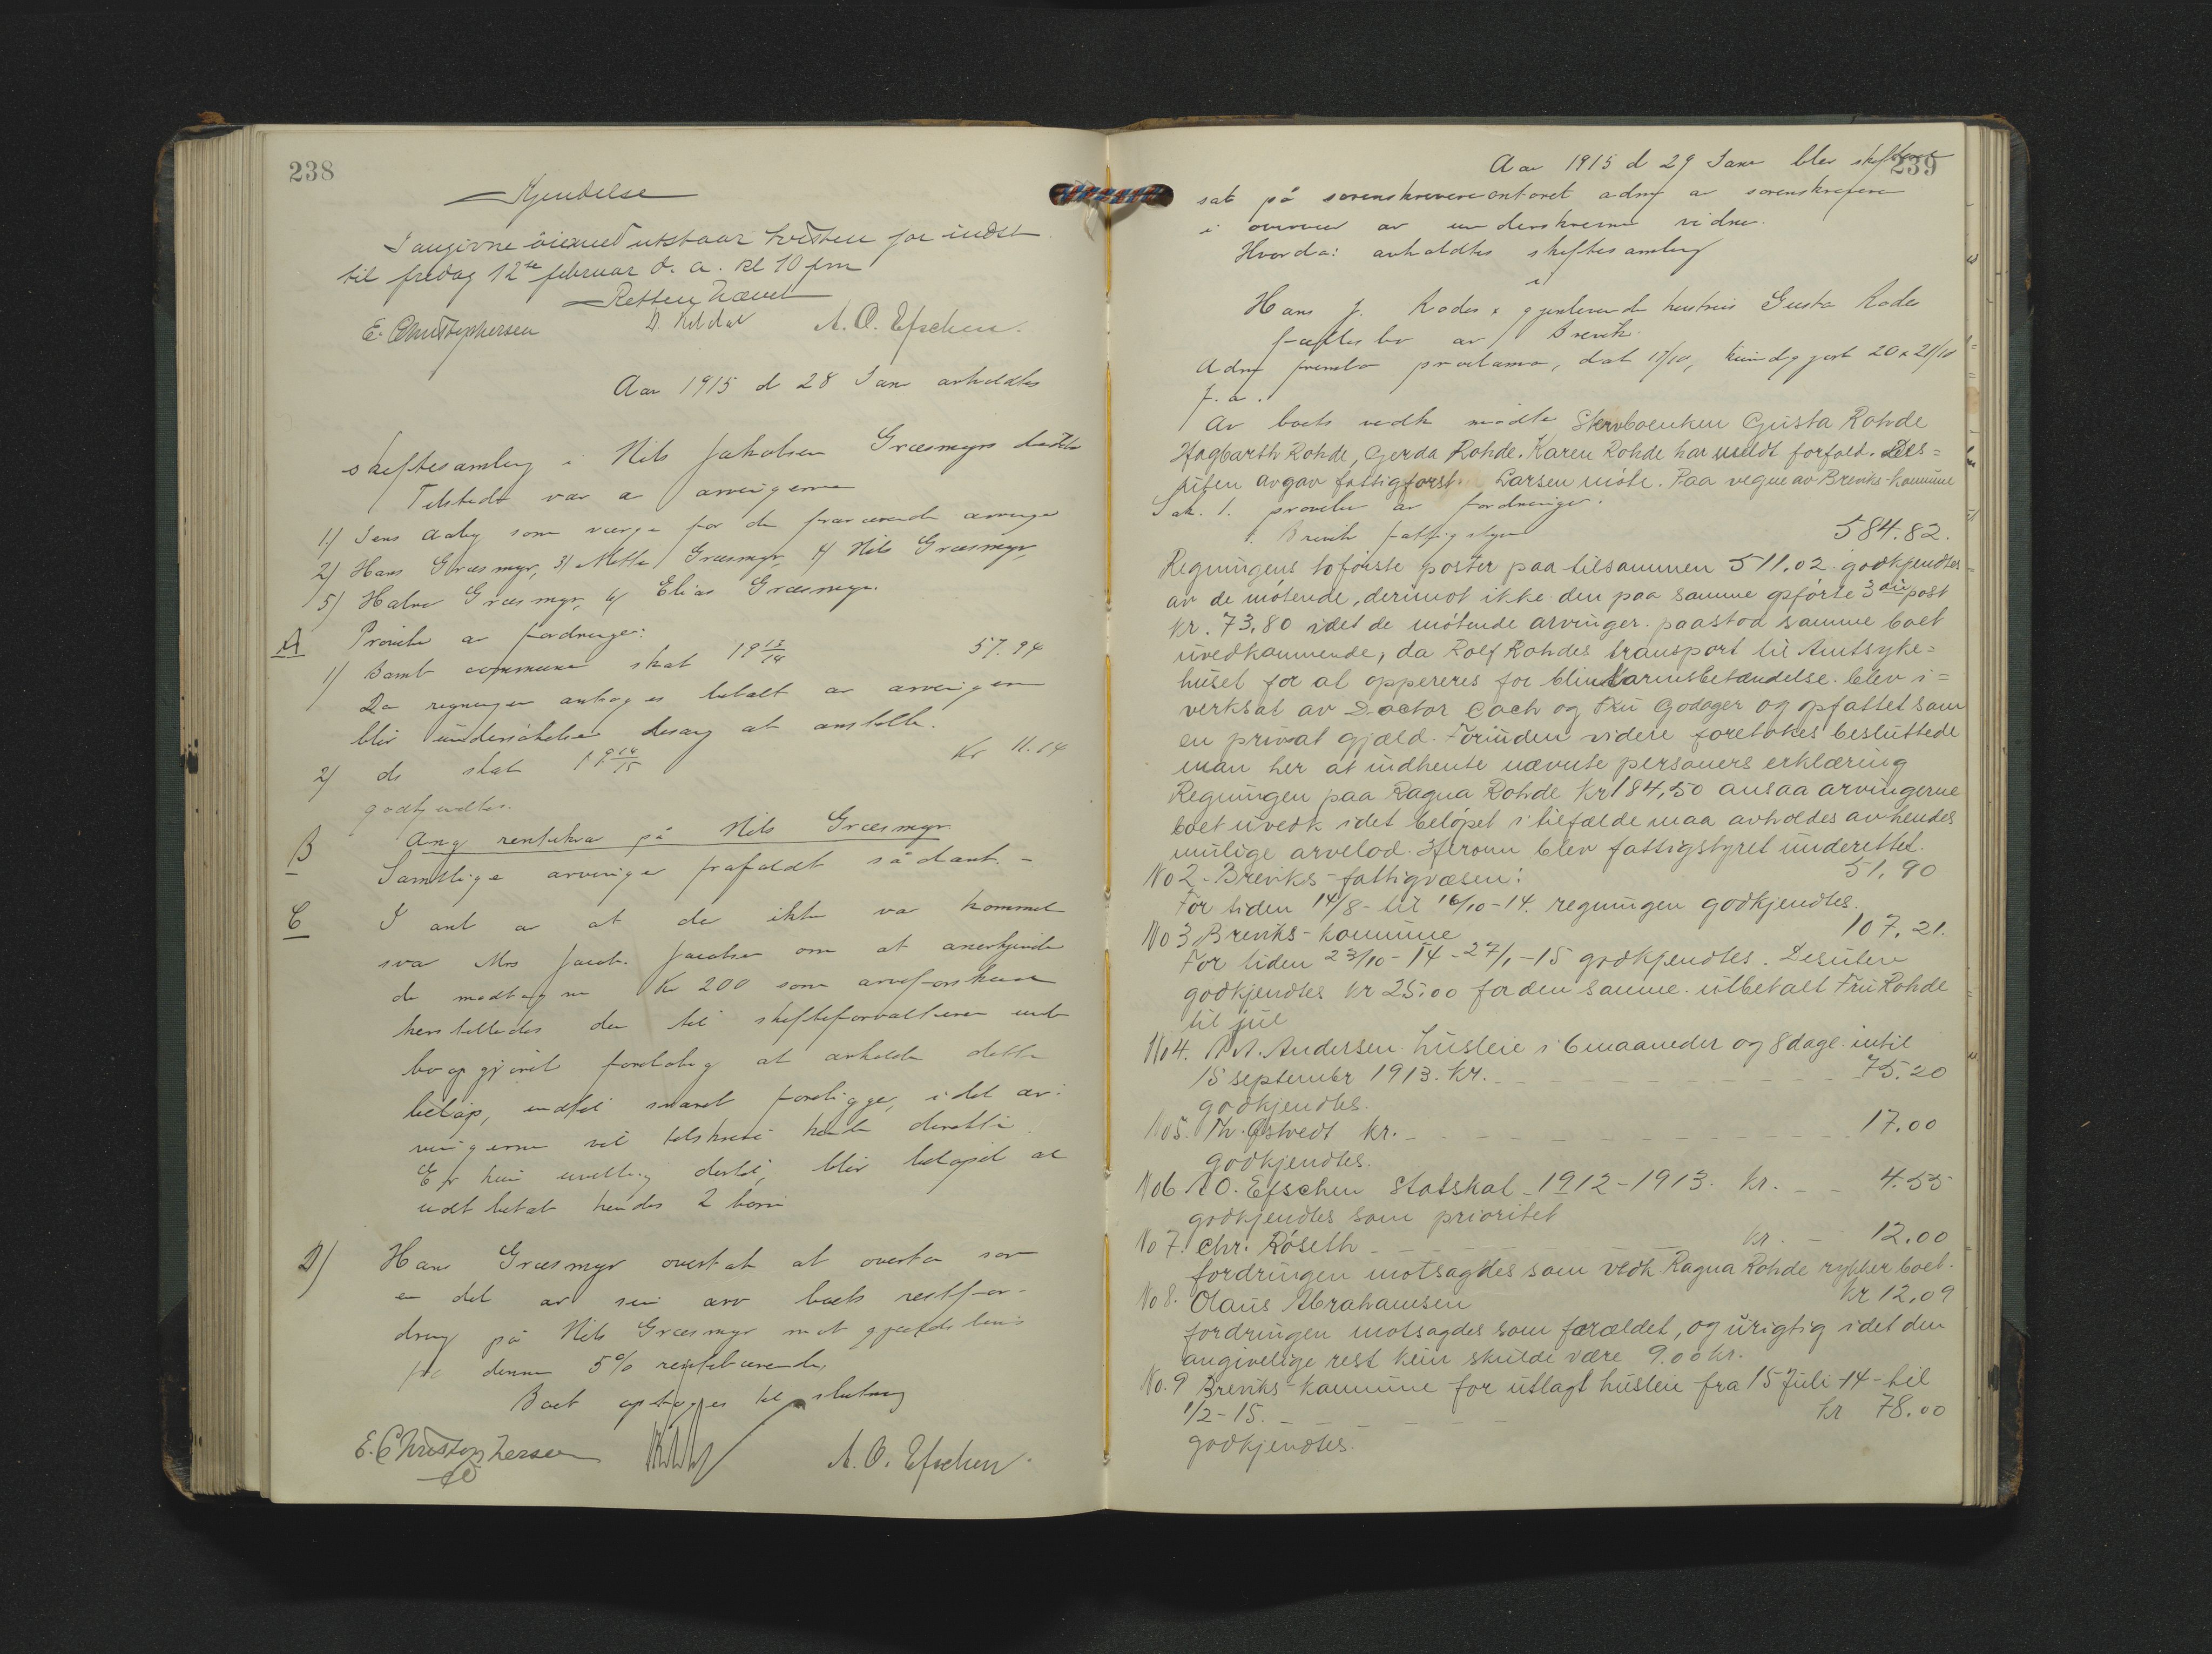 238
Kjendelse
I angivne øiemed utstaar tvisten for indst
til fredag 12te februar d. a. kl 10 fm
Retten hævet
E. Christophersen A. O. Efschen.
Aar 1915 d 28 Jan avholdtes
skiftesamling i Nils Jakobsen Græsmyrs dødsbo
Tilstede var av arvingerne
1) Jens Aaby som værge for de fraværende arvinge
2) Hans Græsmyr, 3) Mette Græsmyr, 4) Nils Græsmyr,
5) Halvor Græsmyr, 6) Elias Græsmyr.
A Prøvelse av fordringer:
1) Bamle commune skat 19 13/14 57.94
Da regningen antages betalt av arvingerne
blir undersøkelse desang at anstille.
2) do skat 19 14/15 Kr 11.14
godkjendtes.
B Ang rentekrav på Nils Græsmyr
Samtlige arvinger frafaldt sådant. -
C I anl av at der ikke var kommet
svar Mrs Jacob Jacobsen om at anerkjende
de modtagne Kr 200 som arveforskud
henstilledes der til skifteforvalteren under
boopgjøret foreløbig at avholde dette
beløp, indtil svaret foreligge, idet ar-
vingerne vil tilskrive hende derom
Er hun uvillig dertil, blir beløpet at
udbetale hendes 2 børn
D) Hans Græsmyr overtok at overta som
en del av sin arv boets restfor-
dring på Nils Græsmyr mot gjældsbevis
fra denne 5% rentebærende,
Boet optages til slutning
E. Christophersen A. O. Efschen.
239
Aar 1915 d 29 Jan blev skifteret
sat på sorenskriverecontoret adm av sorenskriveren
i overvær av underskrevne vidner.
Hvorda: avholdtes skiftesamling
i
Hans J. Rodes & gjenlevende hustrus Gusta Rodes
fællesbo av Brevik.
Adm fremla proclama, dat 17/10, kundgjort 20 & 21/10
f. a.
Av boets vedk mødte Stervboenken Gusta Rohde
Hagbarth Rohde, Gerda Rohde. Karen Rohde har meldt forfald. Des=
uten avgav fattigforst. Larsen møte. Paa vegne av Breviks-kommune
Sak. 1. prøvelse av fordringer.
1. Brevik fattigstyre 584.82.
Regningens to første poster paa tilsammen 511.02 godkjendtes
av de møtende, derimot ikke den paa samme opførte 3die post
kr. 73,80 idet de møtende arvinger paastod samme boet
uvedkommende, da Rolf Rohdes transport til Amtsyke=
huset for at oppereres for blindtarmsbetændelse blev i=
verksat av Doctor Coch og Fru Godager og opfattet som
en privat gjæld. Forinden videre foretokes besluttede
man her at indhente nævnte personers erklæring
Regningen paa Ragna Rohde Kr 184,50 ansaa arvingerne
boet uvedk idet beløpet i tilfælde maa avholdes av hendes
mulige arvelod. Herom blev fattigstyret underettet.
No 2. Breviks-fattigvæsen: 51,90
For tiden 14/8 - til 16/10-14. regningen godkjendtes.
No 3 Breviks-kommune 107.21.
For tiden 23/10-14 - 27/1-15 godkjendtes. Desuten
godkjendtes kr 25.00 for den samme utbetalt Fru Rohde
til jul
No 4. A. A. Andersen husleie i 6 maaneder og 8 dage intil
15 septembr 1913. Kr. 75.20
godkjendtes.
No 5. Th. Østvedt Kr. 17.00
godkjendtes.
No 6 A O. Efschen Statskat - 1912-1913. Kr. 4.55
godkjendtes som prioritet
No 7. Chr. Røseth kr. 12.00
fordringen motsagdes som vedk Ragna Rohde rykker boet.
No 8. Olaus Abrahamsen Kr 12,09
fordringen motsagdes som forældet, og urigtig idet den
angivelige rest kun skulde være 9.00 kr.
No. 9 Breviks-kommune for utlagt husleie fra 15 Juli 14 - til
1/2-15. kr 78.00
godkjendtes.